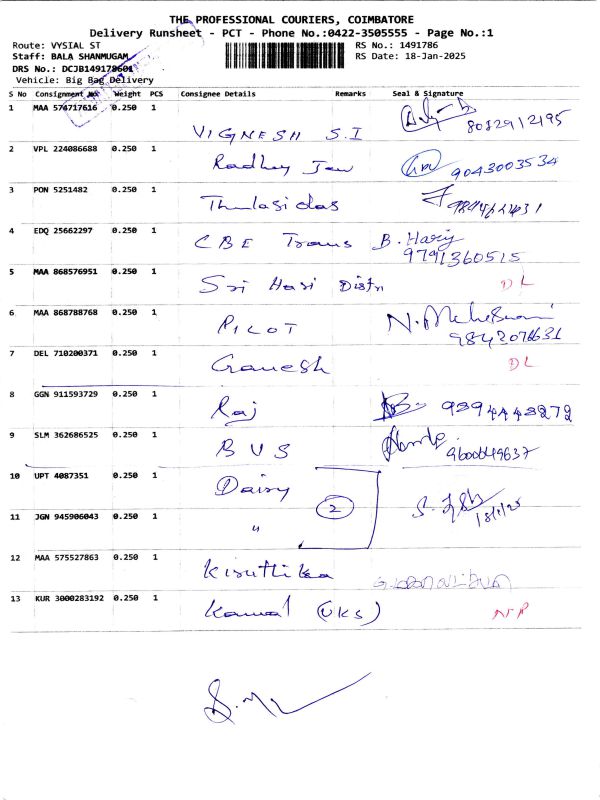 THE PROFESSIONAL COURIERS, COIMBATORE
Delivery Runsheet - PCT - Phone No.:0422-3505555 - Page No.:1
Route: VYSIAL ST
RS No.: 1491786
Staff: BALA SHANMUGAM
RS Date: 18-Jan-2025
DRS No.: DCJB149178601
Vehicle: Big Bag Delivery
S No Consignment No Weight PCS Consignee Details Remarks Seal & Signature
1 MAA 574717616 0.250 1 VIGNESH S.I
2 VPL 224086688 0.250 1 Radhey Jew 9043003534
3 PON 5251482 0.250 1 Thulasidas
4 EDQ 25662297 0.250 1 CBE Trans B. Hary
9791360515
5 MAA 868576951 0.250 1 Sri Hari Distri DL
6 MAA 868788768 0.250 1 PILOT
7 DEL 710200371 0.250 1 Ganesh DL
8 GGN 911593729 0.250 1 Raj 9394443272
9 SLM 362686525 0.250 1 BVS 9600649637
10 UPT 4087351 0.250 1 Daisy
2
18/1/25
11 JGN 945906043 0.250 1 "
12 MAA 575527863 0.250 1 Kiruthika
13 KUR 3000283192 0.250 1 Kamal (UKS)